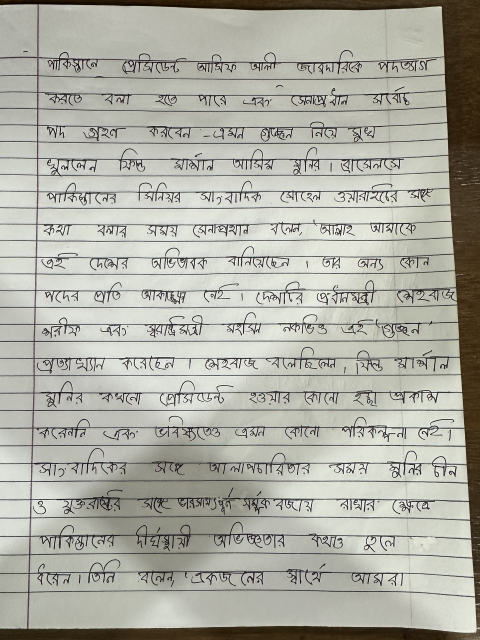 পাকিস্তানে প্রেসিডেন্ট আসিফ আলী জারদারিকে পদত্যাগ
করতে বলা হতে পারে এবং সেনাপ্রধান সর্বোচ্চ
পদ গ্রহণ করবেন -এমন গুঞ্জন নিয়ে মুখ
খুললেন ফিল্ড মার্শাল আসিম মুনির। ব্রাসেলসে
পাকিস্তানের সিনিয়র সাংবাদিক সোহেল ওয়ারাইচের সঙ্গে
কথা বলার সময় সেনাপ্রধান বলেন, 'আল্লাহ আমাকে
এই দেশের অভিভাবক বানিয়েছেন। তার অন্য কোন
পদের প্রতি আকাঙ্ক্ষা নেই। দেশটির প্রধানমন্ত্রী শেহবাজ
শরীফ এবং স্বরাষ্ট্রমন্ত্রী মহসিন নকভিও এই 'গুঞ্জন'
প্রত্যাখ্যান করেছেন। শেহবাজ বলেছিলেন, ফিল্ড মার্শাল
মুনির কখনো প্রেসিডেন্ট হওয়ার কোনো ইচ্ছা প্রকাশ
করেননি এবং ভবিষ্যতেও এমন কোনো পরিকল্পনা নেই।
সাংবাদিকের সঙ্গে আলাপচারিতার সময় মুনির চীন
ও যুক্তরাষ্ট্রের সঙ্গে ভারসাম্যপূর্ণ সম্পর্ক বজায় রাখার ক্ষেত্রে
পাকিস্তানের দীর্ঘস্থায়ী অভিজ্ঞতার কথাও তুলে
ধরেন। তিনি বলেন, 'একজনের স্বার্থে আমরা